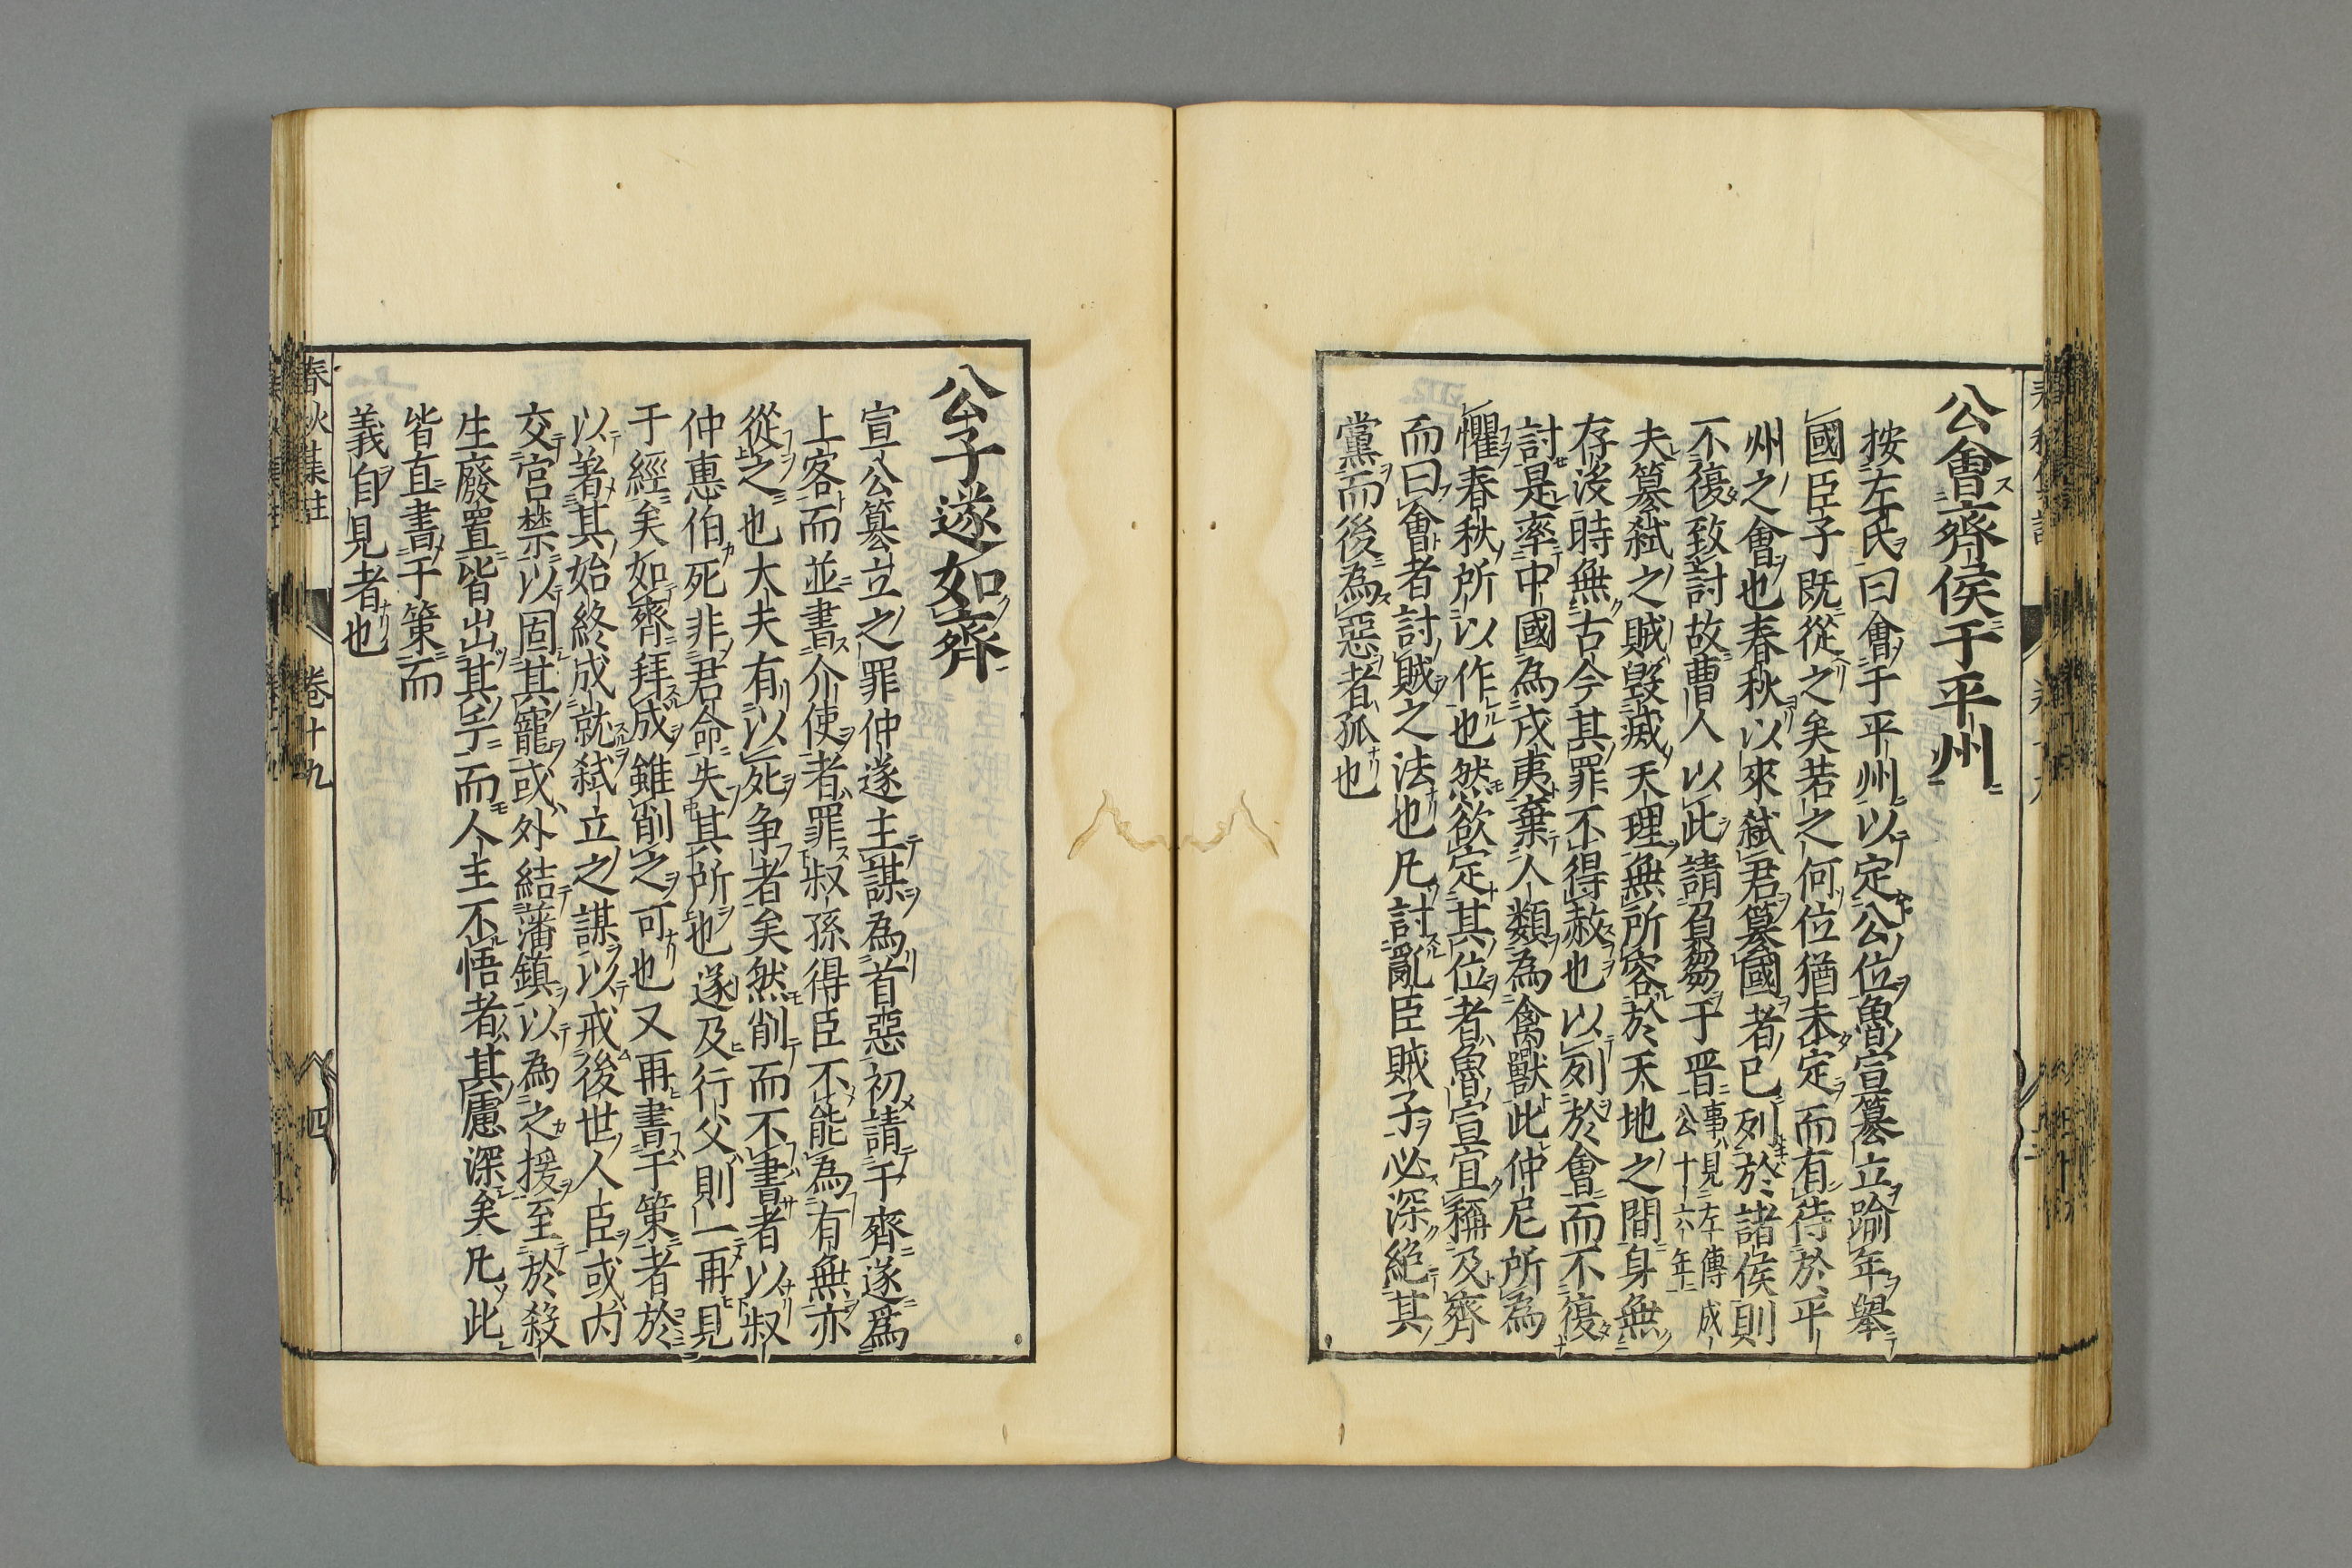 公會齊侯于平州
按左氏曰會于平州以定公位魯宣篡立踰年舉
國臣子既從之矣若之何位猶未定而有待於平
州之會也春秋以來弒君篡國者已列於諸侯則
不復致討故曹人以此請負芻于晉事見左傳成公十六年
夫篡弒之賊毀滅天理無所容於天地之間身無
存沒時無古今其罪不得赦也以列於會而不復
討是率中國為戎夷棄人類為禽獸此仲尼所為
懼春秋所以作也然欲定其位者魯宣宜稱及齊
而曰會者討賊之法也凡討亂臣賊子必深絕其
黨而後為惡者孤也
公子遂如齊
宣公篡立之罪仲遂主謀為首惡初請于齊遂爲
上客而並書介使者罪叔孫得臣不能為有無亦
從之也大夫有以死爭者矣然削而不書者以叔
仲惠伯死非君命失其所也遂及行父則一再見
于經矣如齊拜成雖削之可也又再書于策者於
以著其始終成就弒立之謀以戒後世人臣或內
交宮禁以固其寵或外結藩鎮以為之援至於殺
生廢置皆出其手而人主不悟者其慮深矣凡此
皆直書于策而
義自見者也
春秋集註 卷十九 四